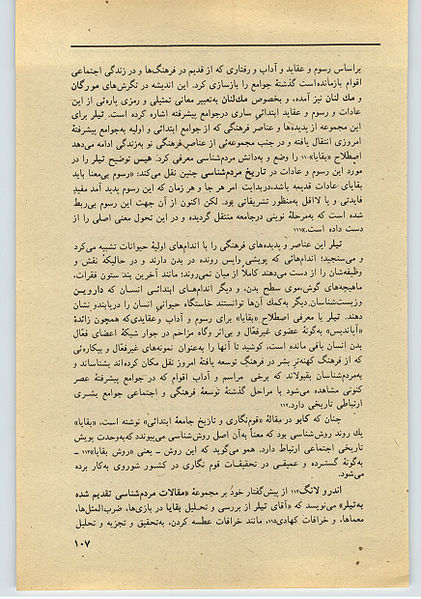 براساس رسوم و عقاید و آداب و رفتاری که از قدیم در فرهنگ‌ها و در زندگی اجتماعی
اقوام بازمانده‌است گذشتهٔ جوامع را بازسازی کرد. این اندیشه در نگرش‌های مورگان
و مك لنان نیز آمده، و بخصوص مك‌لنان به‌تعبیر معانی تمثیلی و رمزی پاره‌ئی از این
عادات و رسوم و عقاید ابتدائی ساری درجوامع پیشرفته اشاره کرده است. تیلر برای
این مجموعه از پدیده‌ها و عناصر فرهنگی که از جوامع ابتدائی و اولیه به‌جوامع پیشرفتهٔ
امروزی انتقال یافته و در جنب مجموعه‌ئی از عناصر فرهنگی نو به‌زندگی ادامه می‌دهد
اصطلاح «بقایا»۱۱۰ را وضع و به‌دانش مردم‌شناسی معرفی کرد. هیس توضیح تیلر را در
مورد این رسوم و عادات در تاریخ مردم‌شناسی چنین نقل می‌کند: «رسوم بی‌معنا باید
بقایای عادات قدیمه باشد، دربدایت امر هر جا و هر زمان که این رسوم پدید آمد مفید
فایدتی و یا لااقل به‌منظور تشریفاتی بود. لکن اکنون از آن جهت این رسوم بی‌ربط
شده است که به‌مرحلهٔ نوینی درجامعه منتقل گردیده و در این تحول معنی اصلی را از
دست داده است.»۱۱۱
تیلر این عناصر و پدیده‌های فرهنگی را با اندام‌های اولیهٔ حیوانات تشبیه می‌کرد
و می‌سنجید؛ اندام‌هائی که پویشی واپس رونده در بدن دارند و در حالیکهٔ نقش و
وظیفه‌شان را از دست می‌دهند کاملا از میان نمی‌روند؛ مانند آخرین بند ستون فقرات،
ماهیچه‌های گوش، موی سطح بدن، و دیگر اندام‌های ابتدائی انسان که داروین
وزیست‌شناسان دیگر به‌کمك آن‌ها توانستند خاستگاه حیوانی انسان را دریابندو نشان
دهند. تیلر با معرفی اصطلاح «بقایا» برای رسوم و آداب وعقایدی‌که همچون زائدهٔ
«آپاندیس» به‌گونهٔ عضوی غیرفعّال و بی‌اثر وگاه مزاحم در جوار شبکهٔ اعضای فعّال
بدن انسان باقی مانده است، کوشید تا آنها را به‌عنوان نمونه‌های غیرفعّال و بیکاره‌ئی
که از فرهنگ کهنه‌تر بشر در فرهنگ توسعه یافتهٔ امروز نقل مکان کرده‌اند بشناساند و
به‌مردم‌شناسان بقبولاند که برخی مراسم و آداب اقوام که در جوامع پیشرفتهٔ عصر
کنونی مشاهده می‌شود با مراحل گذشتهٔ توسعهٔ فرهنگی و اجتماعی جوامع بشری
ارتباطی تاریخی دارد.۱۱۲
چنان که کابو در مقالهٔ «قوم‌نگاری و تاریخ جامعهٔ ابتدائی» نوشته است، «بقایا»
یك روند روش‌شناسی بود که معناً به‌آن اصل روش‌شناسی می‌پیوندد که‌به‌وحدت پویش
تاریخی اجتماعی ارتباط دارد. همو می‌گوید که این روش ـ یعنی «روش بقایا»۱۱۳ ـ
به‌گونهٔ گسترده و عمیقی در تحقیقات قوم نگاری در کشور شوروی به‌کار برده
می‌شود.
اندرو لانگ۱۱۴ از پیش‌گفتار خود بر مجموعهٔ «مقالات مردم‌شناسی تقدیم شده
به‌تیلر» می‌نویسد که «آقای تیلر از بررسی و تحلیل بقایا در بازی‌ها، ضرب‌المثل‌ها،
معماها، و خرافات کهادی۱۱۵، مانند خرافات عطسه کردن، به‌تحقیق و تجزیه و تحلیل
۱۰۷